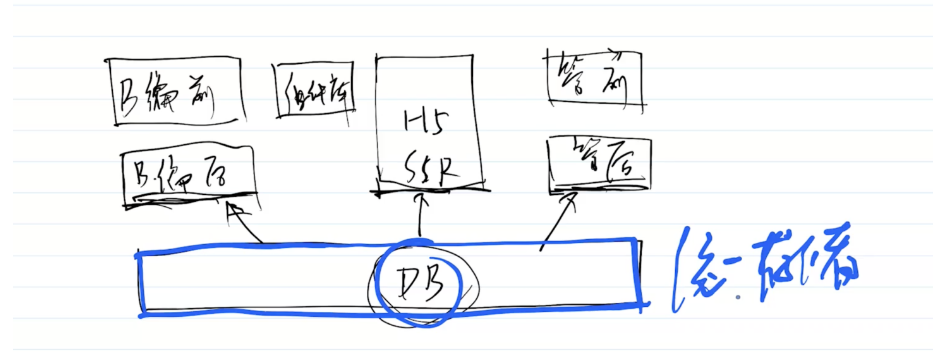 B编前
组件库
H5
SSR
管前
B.编后
管后
DB
统一存储